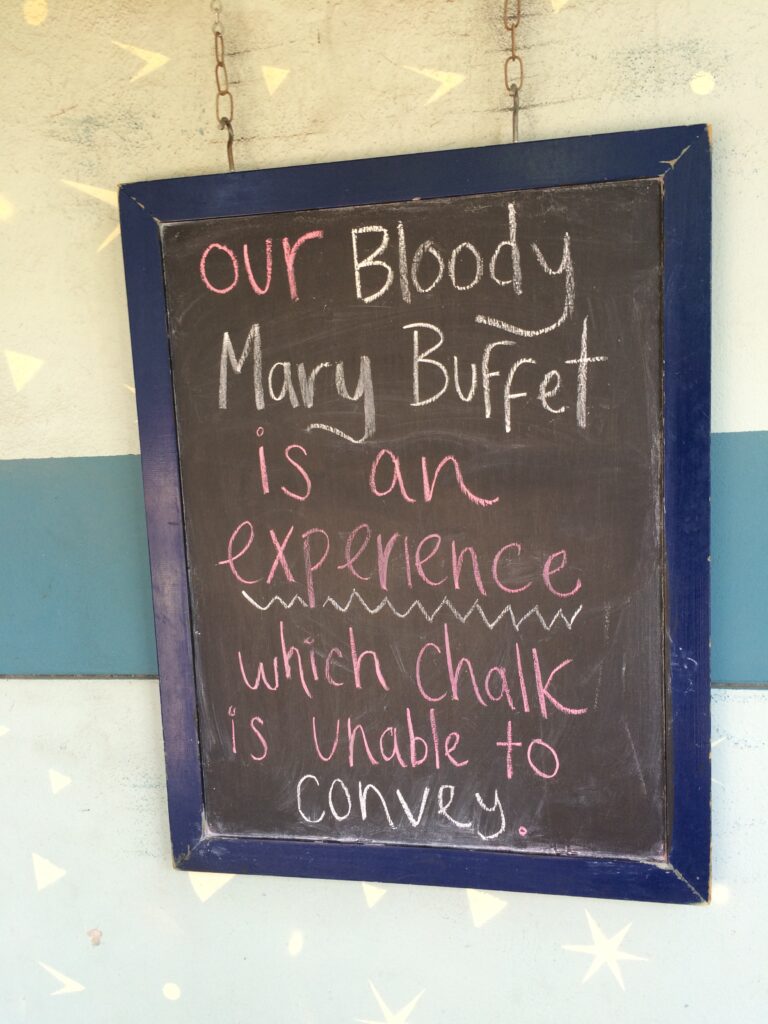 our Bloody
Mary Buffet
is an
experience
which chalk
is unable to
convey.